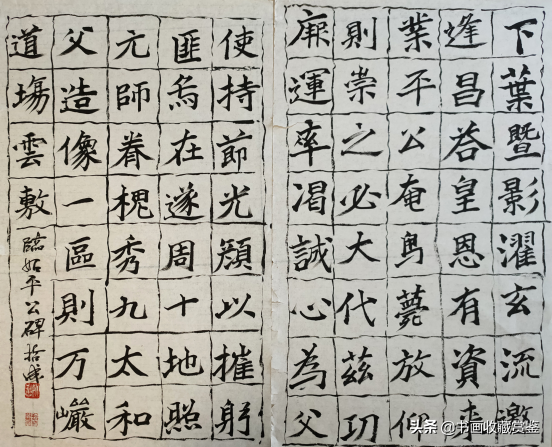 下葉暨影濯玄流邀
逢昌答皇恩有資来
業平公奄鳥薨放仰
則崇之必大代茲㓛
廉運率渴誠心為父
使持節光顏以摧躬
匪烏在遂周十地照
元師眷槐秀九太和
父造像一區則万巖
道場雲敷
臨始平公碑
头条 @书画收藏赏鉴